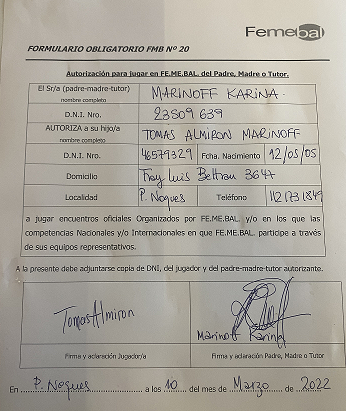 Femebal
FORMULARIO OBLIGATORIO FMB Nº 20
Autorización para jugar en FE.ME.BAL. del Padre, Madre o Tutor.
El Sr/a (padre-madre-tutor) MARINOFF KARINA.
nombre completo
D.N.I. Nro. 23509639
AUTORIZA a su hijo/a TOMAS ALMIRON MARINOFF
nombre completo
D.N.I. Nro. 46579329 Fcha. Nacimiento 12/05/05
Domicilio Fray Luis Beltran 3647
Localidad P. Nogues Teléfono
a jugar encuentros oficiales Organizados por FE.ME.BAL. y/o en los que las
competencias Nacionales y/o Internacionales en que FE.ME.BAL. participe a través
de sus equipos representativos.
A la presente debe adjuntarse copia de DNI, del jugador y del padre-madre-tutor autorizante.
Tomas Almiron
Marinoff Karina
Firma y aclaración Jugador/a Firma y aclaración Padre, Madre o Tutor
En P. Nogues a los 10 del mes de Marzo de 2022